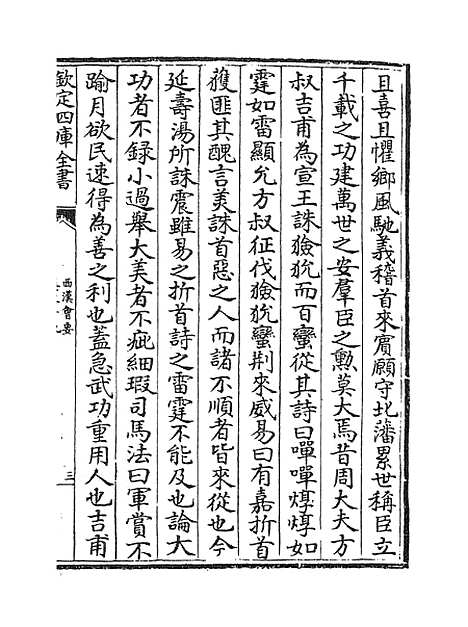 且喜且懼鄉風馳義稽首來賓願守北藩累世稱臣立
千載之功建萬世之安羣臣之勲莫大焉昔周大夫方
叔吉甫為宣王誅獫狁而百蠻從其詩曰嘽嘽焞焞如
霆如雷顯允方叔征伐獫狁蠻荆來威易曰有嘉折首
獲匪其醜言美誅首惡之人而諸不順者皆來從也今
延壽湯所誅震雖易之折首詩之雷霆不能及也論大
功者不録小過舉大美者不疵細瑕司馬法曰軍賞不
踰月欲民速得為善之利也蓋急武功重用人也吉甫
欽定四庫全書
西漢會要
三